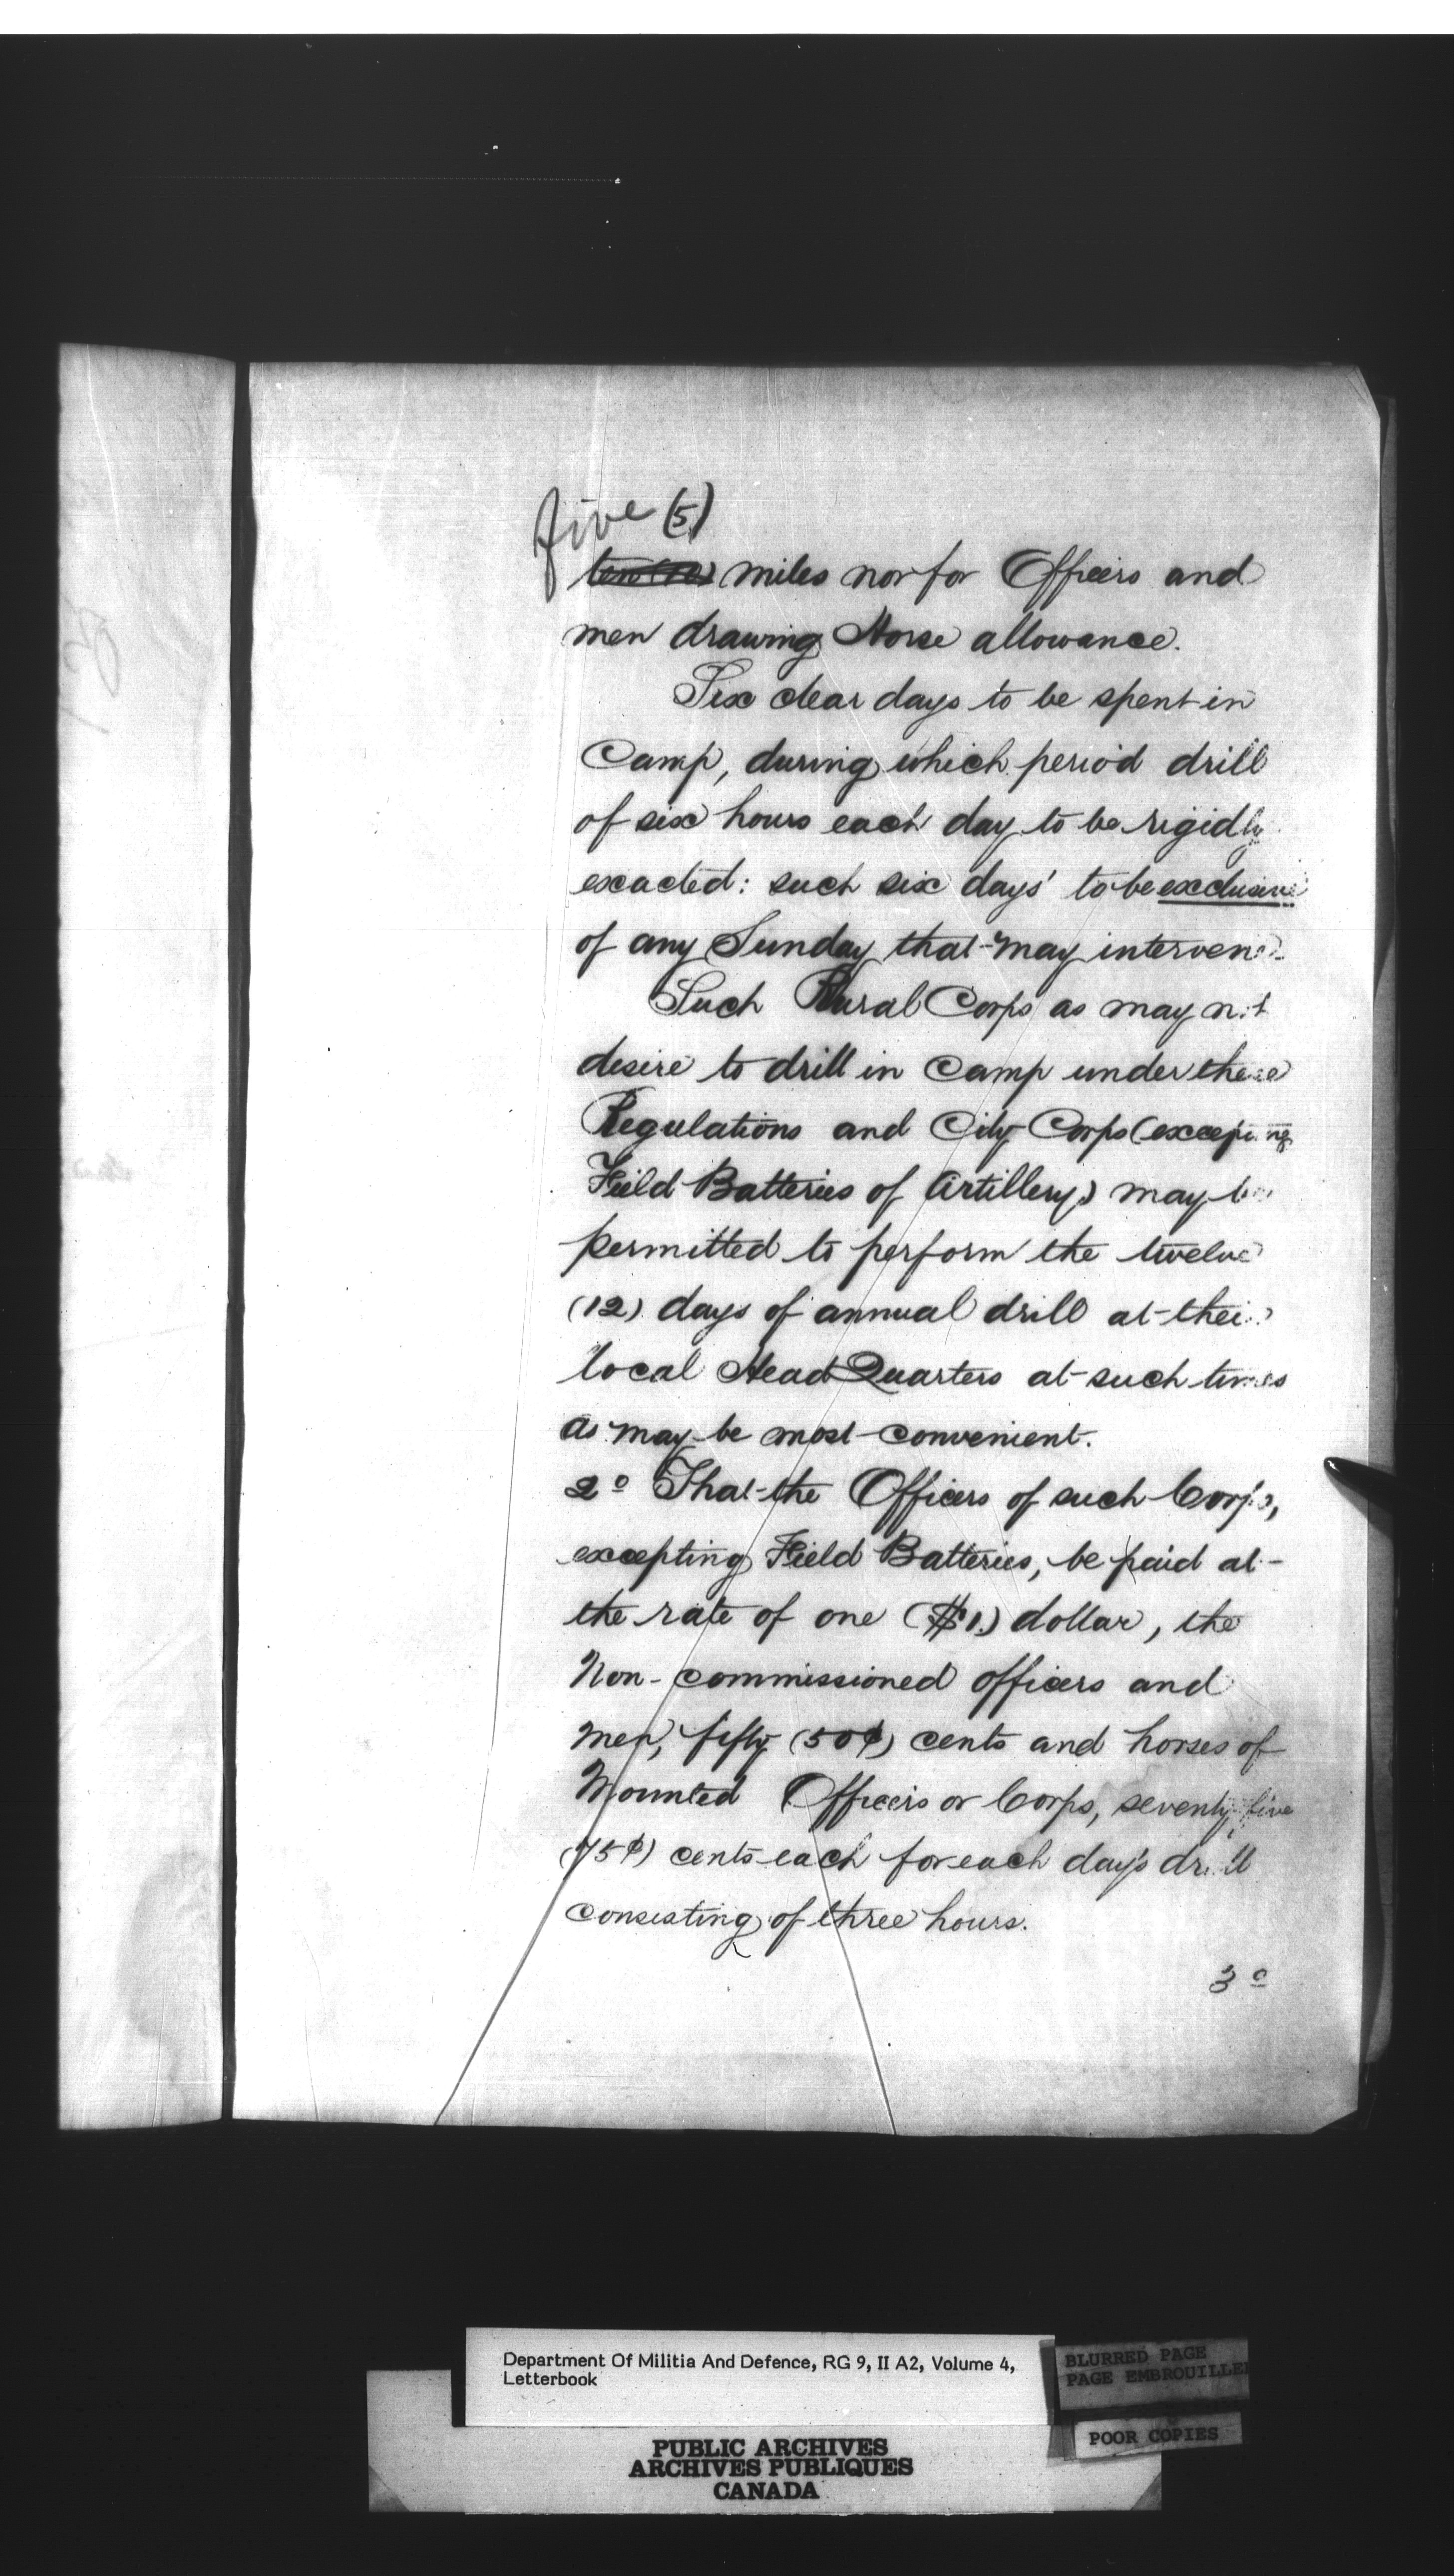 five (5)
ten (10) miles nor for Officers and
men drawing Horse allowance.
Six clear days to be spent in
Camp, during which period drill
of six hours each day to be rigidly
exacted: such six days' to be exclusive
of any Sunday that may intervene.
Such Rural Corps as may not
desire to drill in Camp under these
Regulations and City Corps (excepting
Field Batteries of Artillery) may be
permitted to perform the twelve
(12) days of annual drill at their
local Head Quarters at such times
as may be most convenient.
2º That the Officers of such Corps,
excepting Field Batteries, be paid at
the rate of one ($1.) dollar, the
Non-commissioned officers and
men, fifty (50¢) cents and horses of
Mounted Officers or Corps, seventy five
(75¢) cents each for each day's drill
consisting of three hours.
3º
Department Of Militia And Defence, RG 9, II A2, Volume 4,
Letterbook
BLURRED PAGE
PAGE EMBROUILLEE
POOR COPIES
PUBLIC ARCHIVES
ARCHIVES PUBLIQUES
CANADA